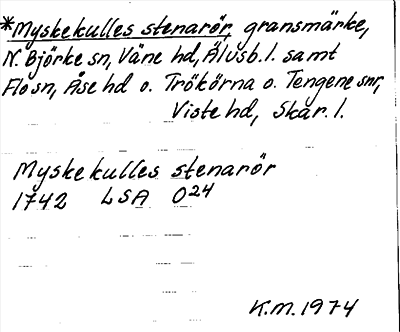 *Myskekulles stenarör, gränsmärke,
N. Björke sn, Väne hd, Älvsb. l. samt
Flo sn, Åse hd o. Trökörna o. Tengene snr,
Viste hd, Skar. l.
Myskekulles stenarör
1742 LSA O24
K.M. 1974